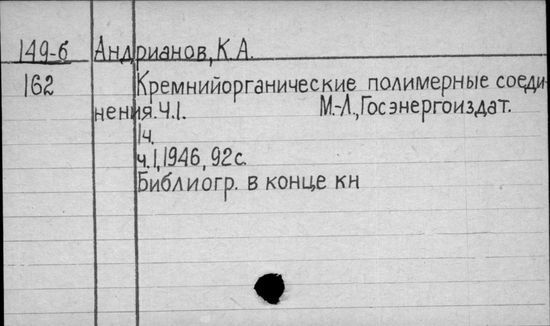 149-б Андрианов, К.А.
162 Кремнийорганические полимерные соеди-
нения. Ч.1. М.-Л., Госэнергоиздат.
1ч.
ч.1, 1946, 92с.
Библиогр. в конце кн